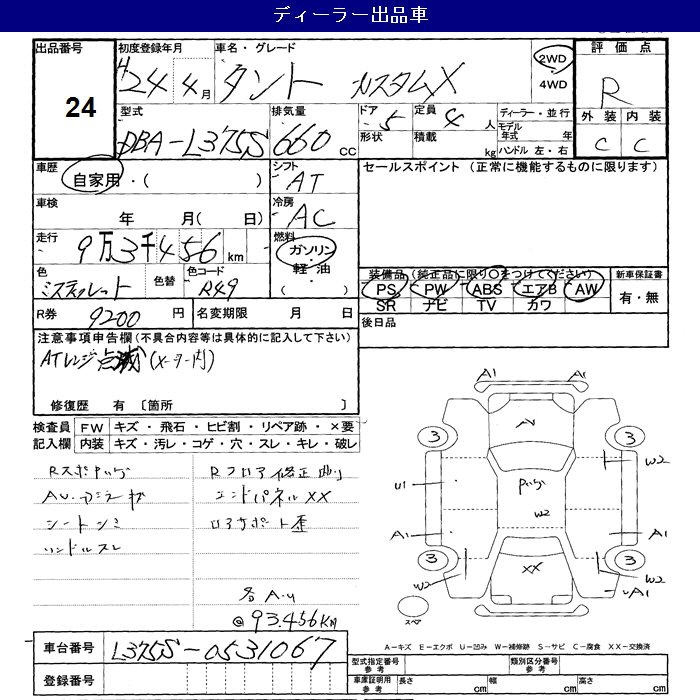 ディーラー出品車
出品番号
24
初度登録年月
H 24年 4月
車名・グレード
タント カスタムX
2WD
4WD
評価点
R
外装 内装
C C
型式
DBA-L375S
排気量
660 cc
ドア
5
形状
定員
4 人
積載
kg
ディーラー・並行
モデル年式 年
ハンドル 左・右
車歴
自家用・( )
シフト
AT
セールスポイント (正常に機能するものに限ります)
車検
年 月( 日)
冷房
AC
走行
9万3千456 km
燃料
ガソリン・
軽油・
( )
色
色替
色コード
R49
装備品(純正品に限り○をつけてください)
PS PW ABS エアB AW
SR ナビ TV カワ
新車保証書
有・無
R券
9200 円
名変期限 月 日
後日品
注意事項申告欄(不具合内容等は具体的に記入して下さい)
ATレンジ点滅(メーター内)
修復歴 有 〔箇所 〕
検査員 FW キズ・飛石・ヒビ割・リペア跡・×要
記入欄 内装 キズ・汚レ・コゲ・穴・スレ・キレ・破レ
Rフロア修正
エンドパネルXX
シートシミ
ハンドルスレ
ロアサポート歪
各A・U
@93,456Km
A1
W2
U1
W2
A1
A1
3
3
3
3
XX
W2
W2
A1
スペア
A-キズ E-エクボ U-凹み W-補修跡 S-サビ C-腐食 XX-交換済
車台番号
L375S-0531067
登録番号
型式指定番号 参考
類別区分番号 参考
車庫証明用 参考
長さ cm 幅 cm 高さ cm